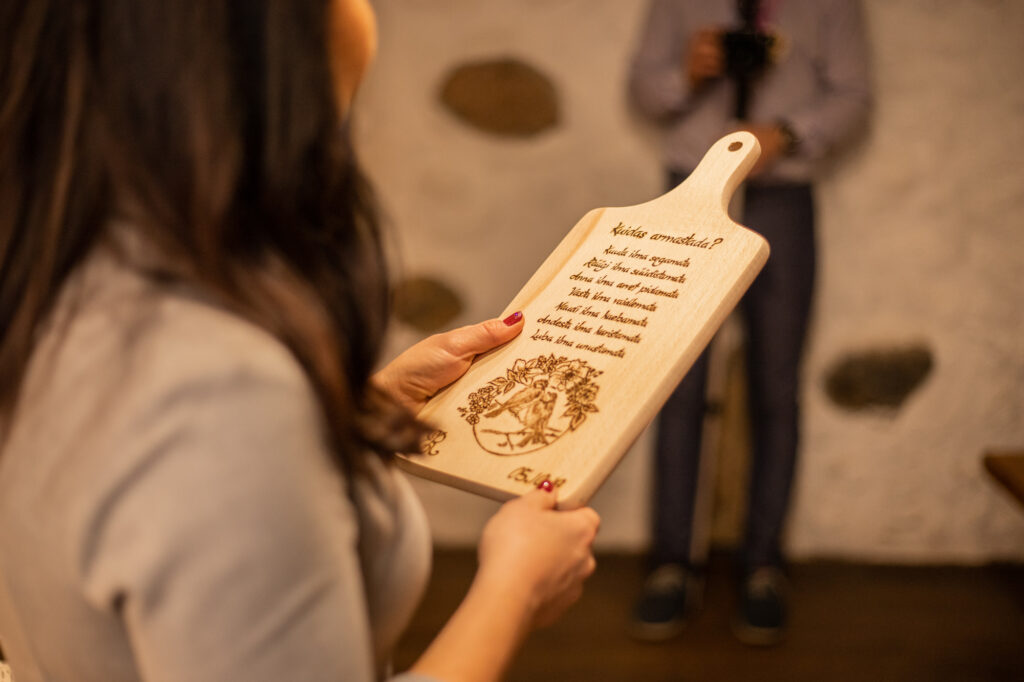 Kuidas armastada?
Kuula ilma segamata
Räägi ilma süüdistamata
Anna ilma arvet pidamata
Vasta ilma vaidlemata
Naudi ilma kaebamata
Andesta ilma karistamata
Luba ilma unustamata